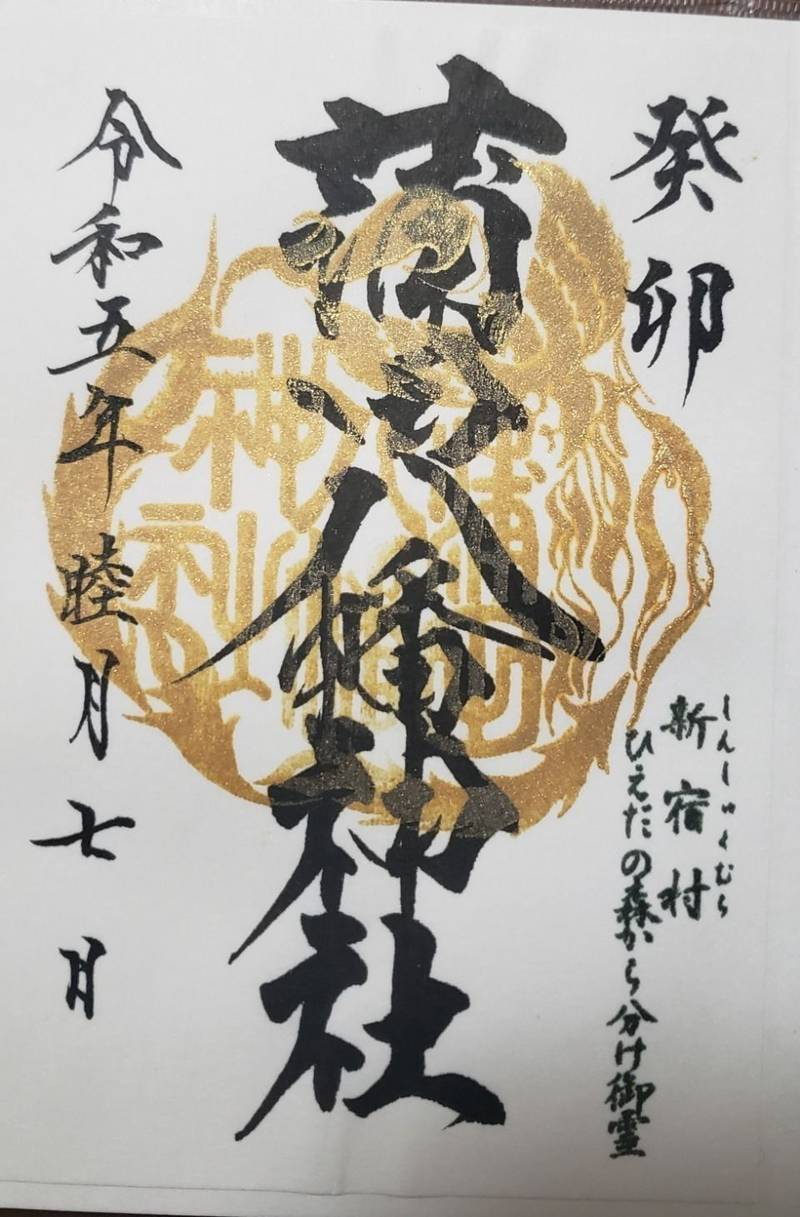 癸卯
しんしゅくむら
新宿村
ひえだの森から分け御霊
蒲田八幡神社
令和五年睦月七日